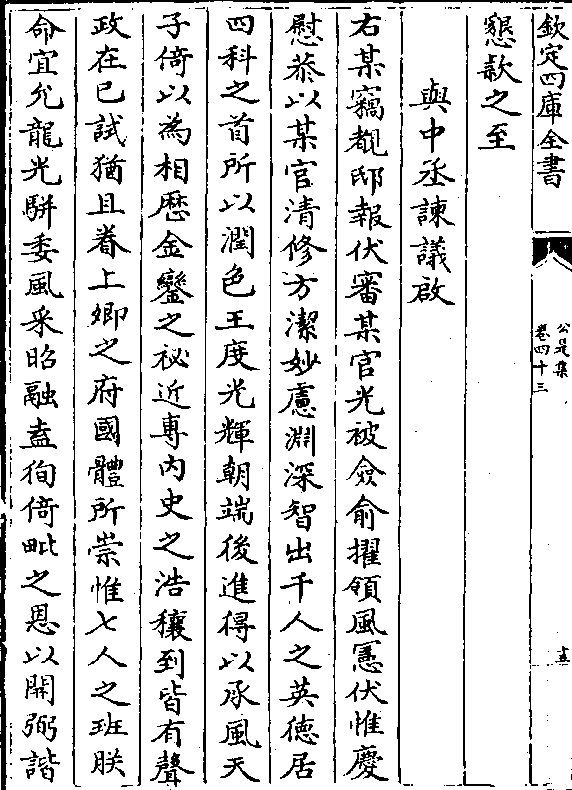 欽定四庫全書
公是集
卷四十三
十五
懇欵之至
與中丞諫議啟
右某竊覩邸報伏審某官光被僉俞擢領風憲伏惟慶
慰恭以某官清修方潔妙慮淵深智出千人之英德居
四科之首所以潤色王度光輝朝端後進得以承風天
子倚以為相歴金鑾之祕近專内史之浩穰到皆有聲
政在已試猶且眷上卿之府國體所崇惟七人之班朕
命宜允龍光駢委風采昭融盍徇倚毗之恩以開弼諧